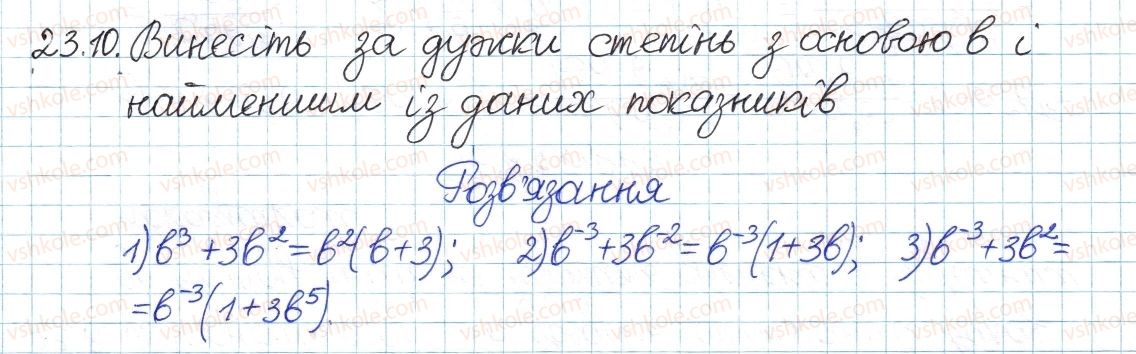 23.10. Винесіть за дужки степінь з основою b і
найменшим із даних показників
Розв'язання
1) b³ + 3b² = b²(b+3); 2) b⁻³ + 3b⁻² = b⁻³(1+3b); 3) b⁻³ + 3b² =
= b⁻³(1+3b⁵).